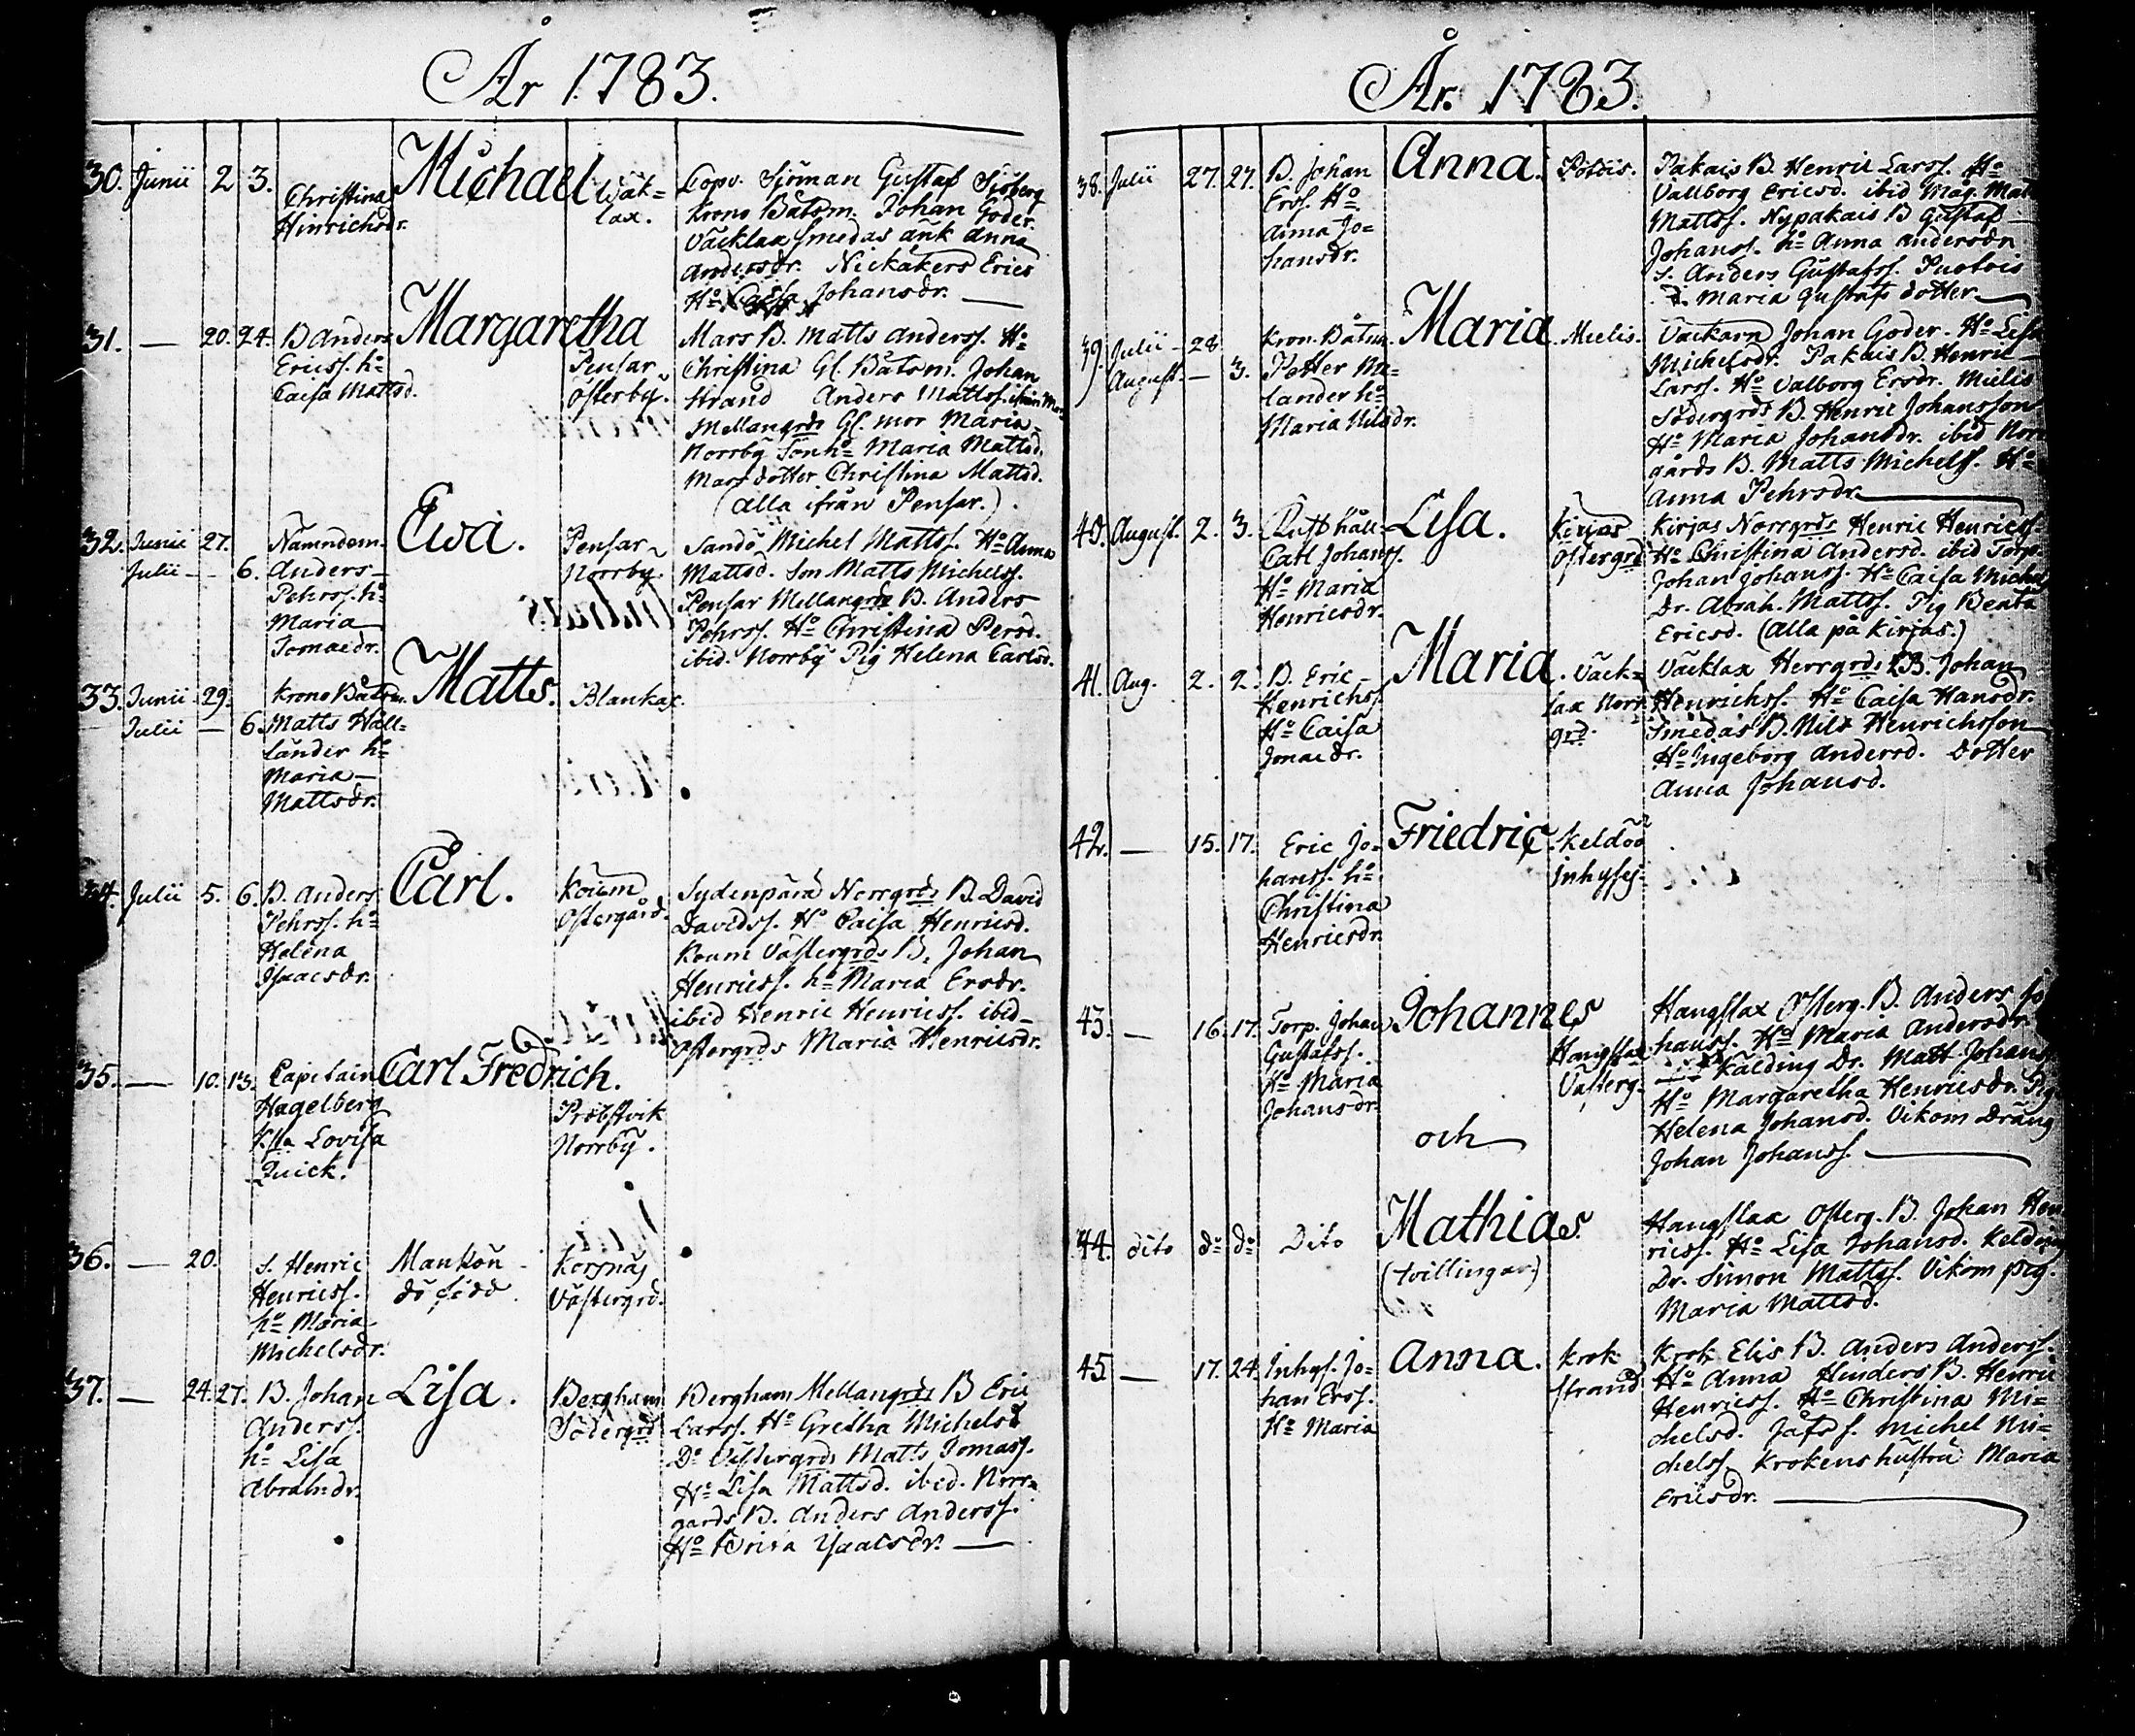 År 1783.
30. Junii 2 3. Christina Hinrichsdr. Michael Wäk=lax. Copv. Sjöman Gustaf Sjöberg
Krono Båtsm. Johan Goder.
Väcklax Smedas änk Anna
Andersdr. Nickåkers Eric
Ho Caisa Johansdr.
31. — 20. 24. B Anders Ericss. ho Caisa Mattsd. Margaretha Pensar Österby. Mars B. Matts Anderss. Ho
Christina Gl. Båtsm. Johan
Strand Anders Mattss.
Mellangrds Gl. mor Maria
Norrby Sonho Maria Mattsd.
Mars dotter Christina Mattsd.
(alla ifrån Pensar.)
32. Junii 27. Julii — 6. Nämndem. Anders Pehrss. ho Maria Tomaedr. Ewa. Pensar Norrby. Sandö Michel Mattss. Ho Anna
Mattsd. Son Matts Michelss.
Pensar Mellangrds B. Anders
Pehrss. Ho Christina Persd.
ibid. Norrby Pig Helena Carlsd.
33. Junii 29. Julii — 6. Krono Båtsm. Matts Hållländer ho Maria Mattsdr. Matts. Blankas.
34. Julii 5. 6. B. Anders Pehrss. ho Helena Isaacsdr. Carl. Koum Östergård. Sydenpärä Norrgrds B. David
Davidss. Ho Caisa Henricsd.
Koum Västergrds B. Johan
Henricss. ho Maria Ersdr.
ibid Henric Henricss. ibid
Östergrds Maria Henricsdr.
35. — 10. 13. Capitain Hagelberg Lovisa Quick. Carl Fredrich. Pröbstvik Norrby.
36. — 20. s. Henric Henricss. ho Maria Michelsdr. Mankön dö född Korsnäs Västergrd.
37. — 24. 27. B. Johan Anderss. ho Lisa Abrah:dr. Lisa. Bergham Södergrd Bergham Mellangrds B Eric
Larss. Ho Gretha Michelsd
Do Västergrds Matts Tomass.
Ho Lisa Mattsd. ibid. Norrgards B. Anders Anderss.
Ho Brita Isaacsdr.
År. 1783.
38. Julii 27. 27. B. Johan Erss. Ho Anna Johansdr. Anna. Potois. Pakais B. Henric Larss. Ho
Vallborg Ericsd. ibid Mag. Mat
Mattss. Nypakais B Gustaf
Johanss. ho Anna Andersdr
s. Anders Gustafss. Puotois
d. Maria Gustafs dotter
39. Julii — 28 August. — 3. Kron. Båtsm. Petter Melander ho Maria Nilsdr. Maria. Mielis. Väckarn Johan Goder. Ho Lisa
Michelsdr. Pakais B. Henric
Larss. Ho Valborg Ersdr. Mielis
Södergrds B. Henric Johansson
Ho Maria Johansdr. ibid Norrgårds B. Matts Michelss. Ho
Anna Pehrsdr.
40. August. 2. 3. Rusthåll. Carl Johanss. Ho Maria Henricsdr. Lisa. Kirjas Östergrd Kirjas Norrgrds Henric Henricss.
Ho Christina Andersd. ibid Torp.
Johan Johanss. Ho Caisa Michels
Dr. Abrah. Mattss. Pig Beata
Ericsd. (Alla på Kirjas.)
41. Aug. 2. 2. B. Eric Henrichss. Ho Caisa Jonaedr. Maria. Väcklax Norrgrd. Väcklax Herrgrds B. Johan
Henrichss. Ho Caisa Hansdr.
Smedas B. Nils Henrichsson
Ho Ingeborg Andersd. Dotter
Anna Johansd.
42. — 15. 17. Eric Johanss. ho Christina Henricsdr. Friedric. Keldöö Inhyses.
43. — 16. 17. Torp. Johan Gustafss. Ho Maria Johansdr. Johannes och Hangslax Västerg. Hangslax Österg. B. Anders Johanss. Ho Maria Andersdr.
Kälding Dr. Matt Johans
Ho Margaretha Henricsdr. Pig.
Helena Johansd. Vikom Dräng
Johan Johanss.
44. dito do do Dito Mathias. (tvillingar.) Hangslax Österg. B. Johan Henricss. Ho Lisa Johansd. Kelding
Dr. Simon Mattss. Vikom pig.
Maria Mattsd.
45. — 17. 24. Inhys. Johan Erss. Ho Maria Anna. Krok strand Krok Elis B. Anders Anderss.
Ho Anna Hinders B. Henric
Henricss. Ho Christina Michelsd. Jåfs s. Michel Michelss. Krokens hustru Maria
Ericsdr.